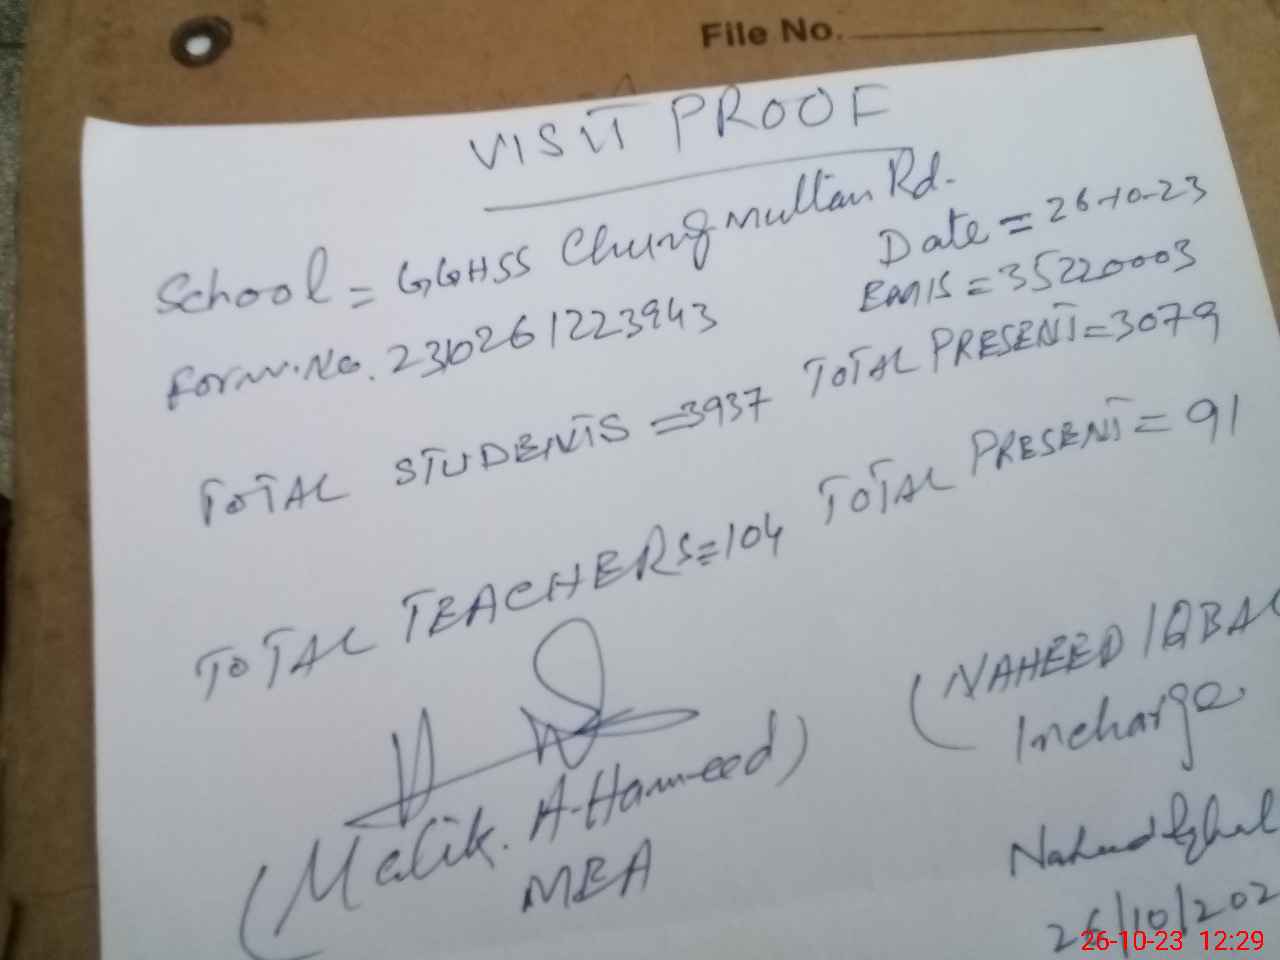 File No.
VISIT PROOF
School = GGHSS Chung Multan Rd.
Date = 26-10-23
Form.No. 230261223943
EMIS = 35220003
TOTAL STUDENTS = 3937 TOTAL PRESENT = 3079
TOTAL TEACHERS = 104 TOTAL PRESENT = 91
(Malik. A-Hameed)
MEA
(NAHEED IQBAL
Incharge
Naheed Iqbal
26/10/202
26-10-23 12:29